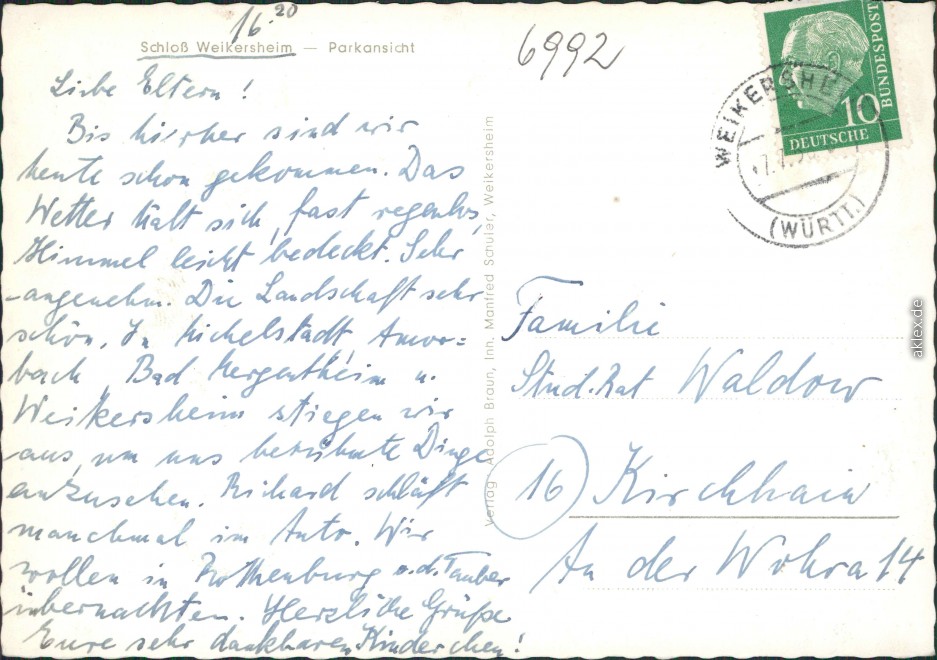 16 20
Schloß Weikersheim — Parkansicht
6992
Liebe Eltern!
Bis hierher sind wir
heute schon gekommen. Das
Wetter hält sich, fast regenlos,
Himmel leicht bedeckt. Sehr
angenehm. Die Landschaft sehr
schön. In Michelstadt Amor=
bach, Bad Mergentheim u.
Weikersheim stiegen wir
aus, um uns berühmte Dinge
anzusehen. Richard schläft
manchmal im Auto. Wir
wollen in Rothenburg o.d.Tauber
übernachten. Herzliche Grüße
Eure sehr dankbaren Kinderchen!
Verlag Adolph Braun, Inh. Manfred Schuler, Weikersheim
10
DEUTSCHE
BUNDESPOST
WEIKERSHE
(WÜRTT.)
Familie
Stud.Rat Waldow
16 Kirchhain
An der Wohra 14
aklex.de